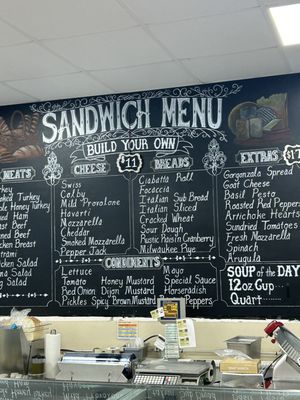 SANDWICH MENU
BUILD YOUR OWN
$11
MEATS
Smoked Turkey
Honey Turkey
Ham
Beef
Beef
Breast
Salad
Salad
CHEESE
Swiss
Colby
Mild Provolone
Havarti
Mozzarella
Cheddar
Smoked Mozzarella
Pepper Jack
BREADS
Ciabatta Roll
Focaccia
Italian Sub Bread
Italian Sliced
Cracked Wheat
Sour Dough
Rustic Raisin Cranberry
Milwaukee Rye
EXTRAS
Gorgonzola Spread
Goat Cheese
Basil Pesto
Roasted Red Peppers
Artichoke Hearts
Sundried Tomatoes
Fresh Mozzarella
Spinach
Arugula
CONDIMENTS
Lettuce
Tomato
Red Onion
Pickles
Mayo
Honey Mustard
Dijon Mustard
Spicy Brown Mustard
Special Sauce
Horseradish
Peppers
SOUP of the DAY
12oz Cup
Quart